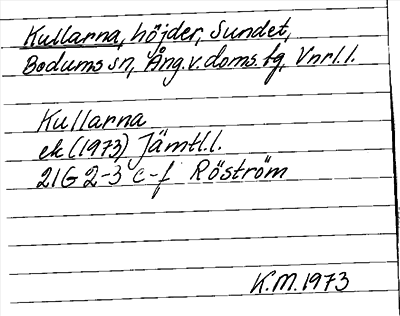 Kullarna, höjder, Sundet,
Bodums sn, Ång.v.doms.fg, Vnrl.l.
Kullarna
ek (1973) Jämtl.l.
21G 2-3 c-f Röström
K.M.1973